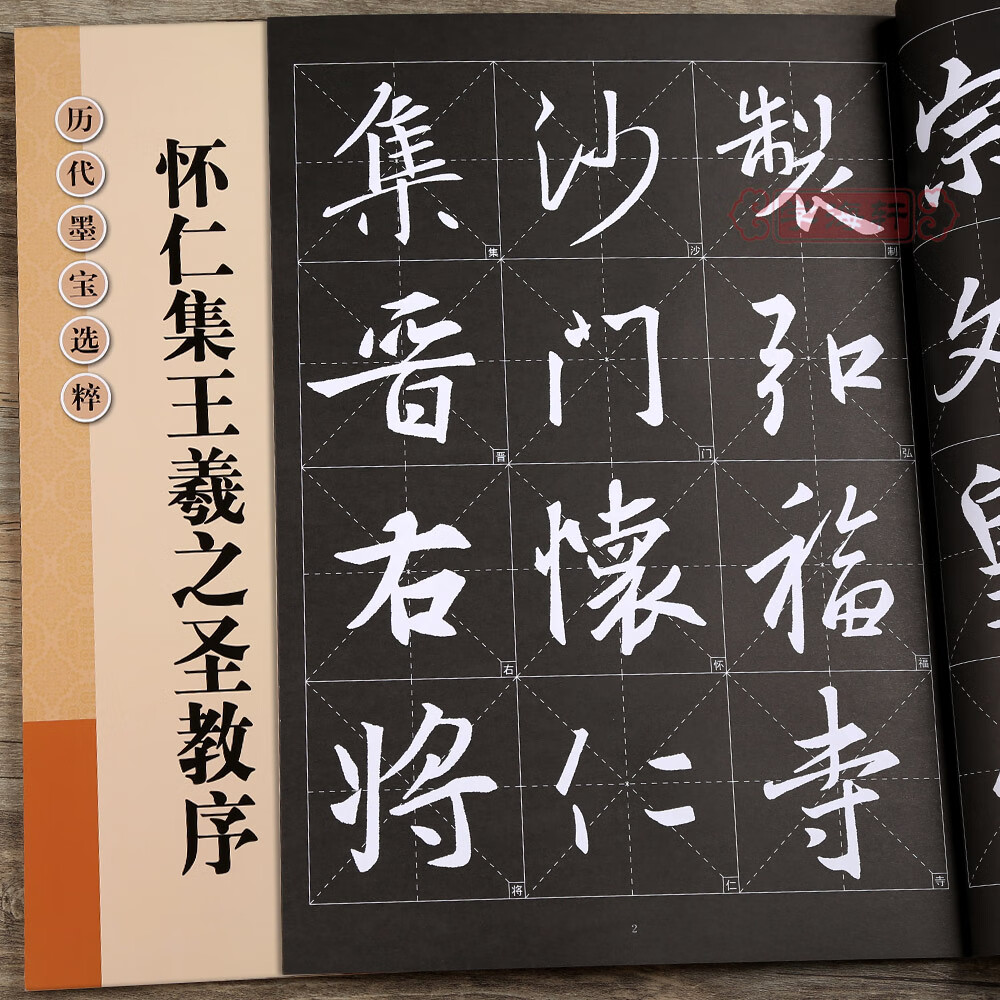 历代墨宝选粹
怀仁集王羲之圣教序
宗文皇
制弘福寺
沙门懷仁
集晋右将
制 弘 福 寺
沙 门 怀 仁
集 晋 右 将
2